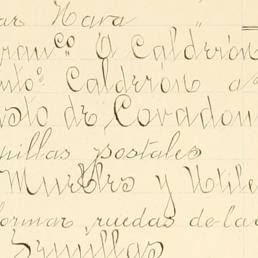 ar Nava "
ran.co O Calderón
nto. Calderón a
sto de Covadon
nillas postales
Muebles y Utile
formar, ruedas de la
Semillas